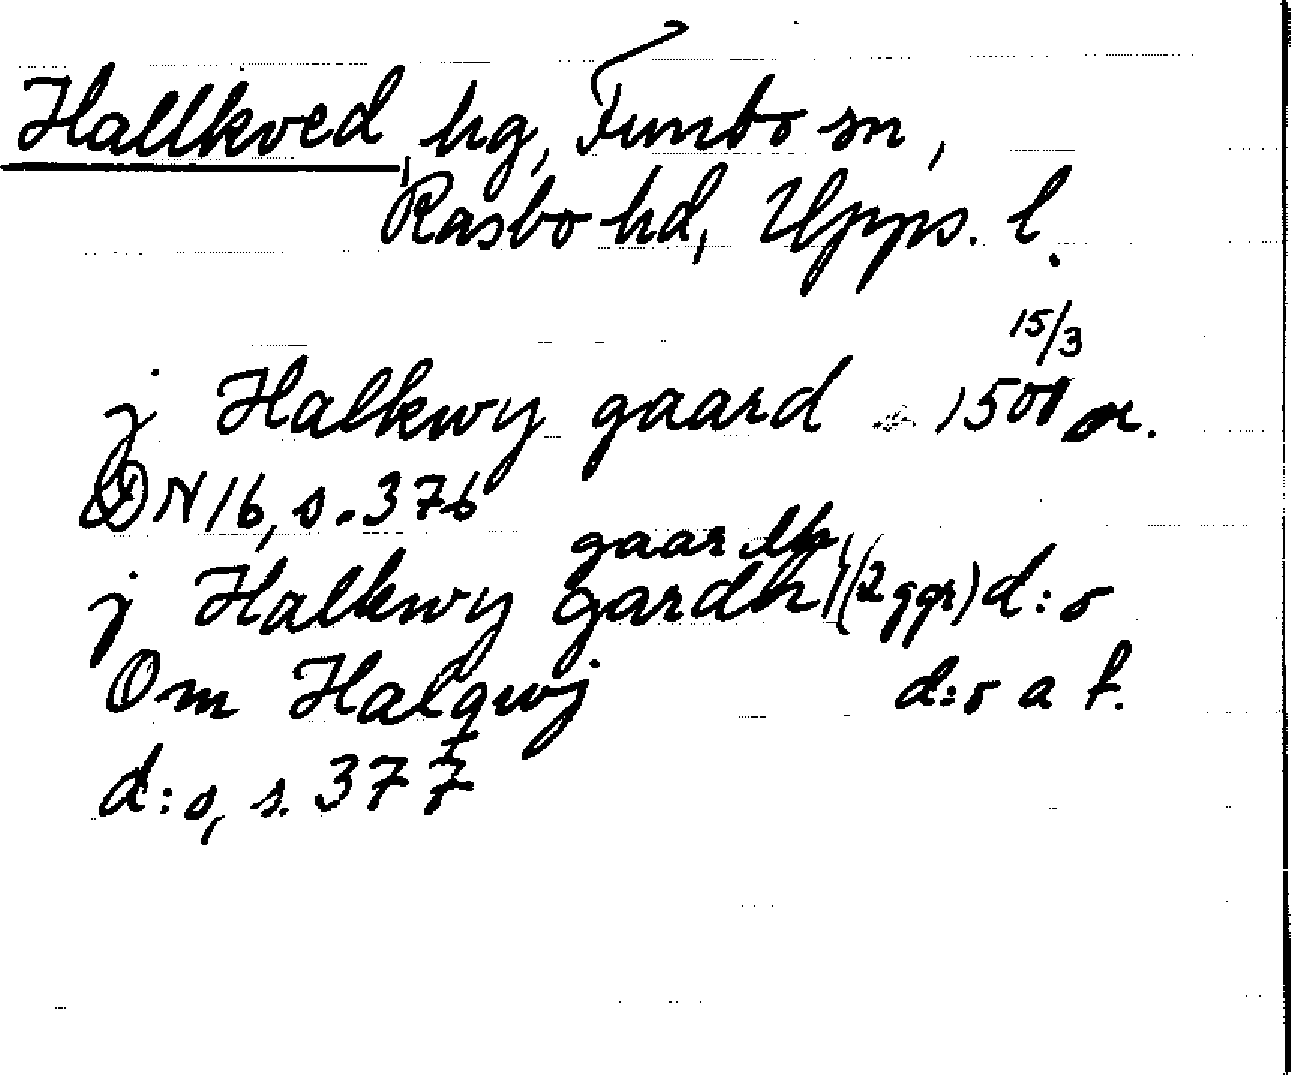 Hallkved, hg, Funbo sn,
Rasbo hd, Upps. l.
15/3
j Halkwy gaard 1501 or.
DN 16, s. 376
gaardh
j Halkwy Gardh (2 ggr) d:o
Om Halqwj d:o a f.
d:o, s. 377